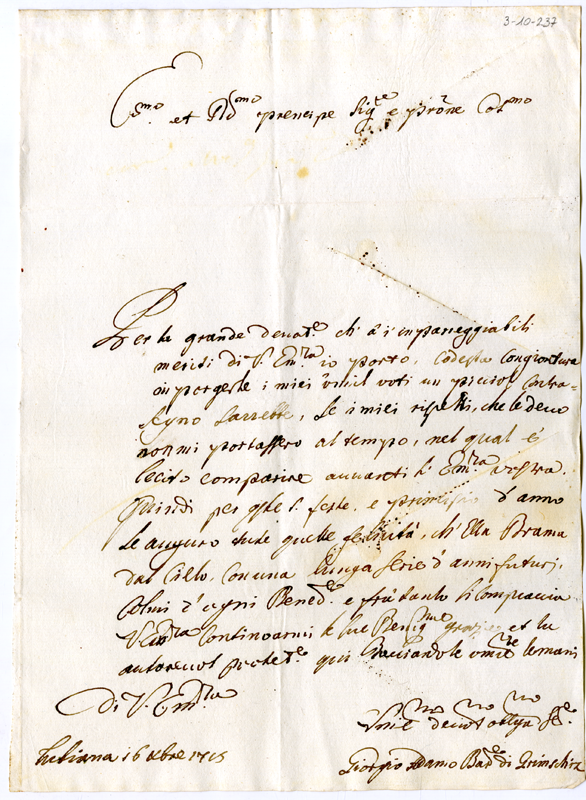 3-10-237
E.mo et R.mo prencipe Sig.re e prone Col.mo
Per la grande deuot.e ch' à i impareggiabili
meriti di V. Em.za io porto, codesta congiontura
in porgerle i miei umil voti un picciol contra-
segno sarrebbe, se i miei rispetti, che le deuo
non mi portassero al tempo, nel qual è
lecito comparire auuanti l' Em.za vostra.
Quindi per queste S. feste, e principio d' anno
le auguro tutte quelle felicità, ch' Ella Brama
dal Cielo, con una lunga serie d' anni futuri,
Colmi d' ogni Bened.e e frà tanto si compiaccia
V. Em.za continoarmi le sue Benig.me grazie, et la
autoreuol protet.e qui Bacciandole umil.te le mani
Di V. Em.za
Umil.mo deuot.mo obblig.mo Se.re
Lubiana 16 Xbre 1715
Giorgio Adamo Bar.e di Grimschiz